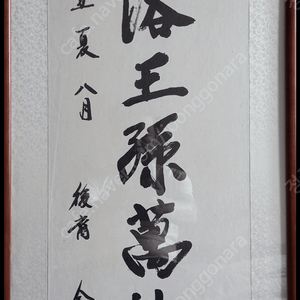 洛王孫萬
夏八月 後裔 金